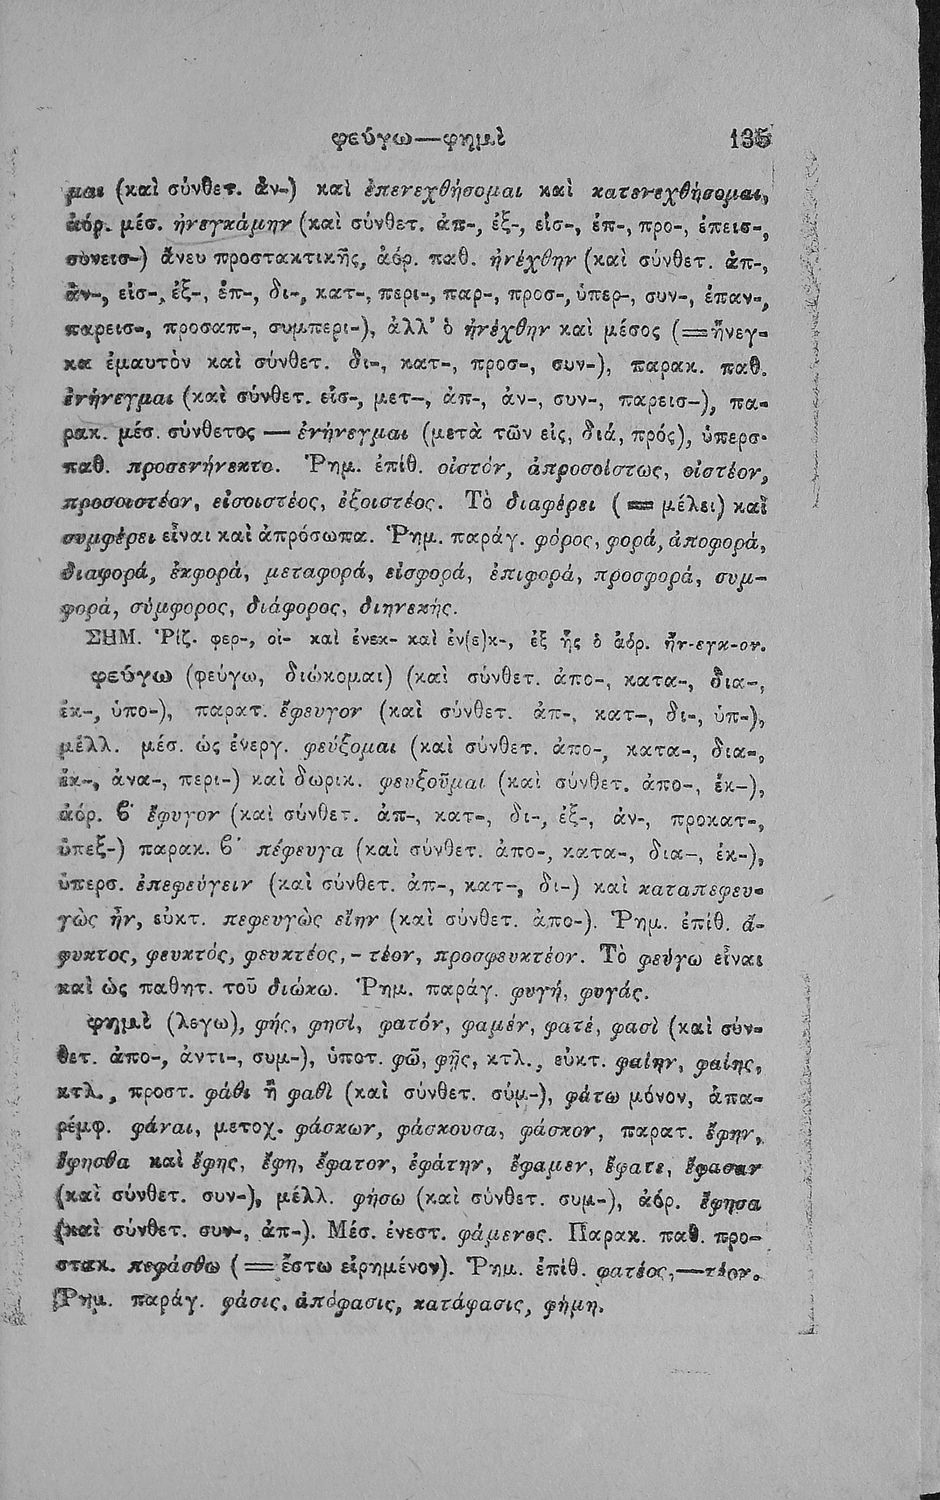 φεύγω—φημὶ 135
μαι (καὶ σύνθετ. ἀν-) καὶ ἐπενεχθήσομαι καὶ κατενεχθήσομαι,
ἀόρ. μέσ. ἠνεγκάμην (καὶ σύνθετ. ἀπ-, ἐξ-, εἰσ-, ἐπ-, προ-, ἐπεισ-,
συνεισ-) ἄνευ προστακτικῆς, ἀόρ. παθ. ἠνέχθην (καὶ σύνθετ. ἀπ-,
ἀν-, εἰσ-, ἐξ-, ἐπ-, δι-, κατ-, περι-, παρ-, προσ-, ὑπερ-, συν-, ἐπαν-,
παρεισ-, προσαπ-, συμπερι-), ἀλλ' ὁ ἠνέχθην καὶ μέσος (=ἤνεγ-
κα ἐμαυτὸν καὶ σύνθετ. δι-, κατ-, προσ-, συν-), παρακ. παθ.
ἐνήνεγμαι (καὶ σύνθετ. εἰσ-, μετ-, ἀπ-, ἀν-, συν-, παρεισ-), πα-
ρακ. μέσ. σύνθετος — ἐνήνεγμαι (μετὰ τῶν εἰς, διά, πρός), ὑπερσ.
παθ. προσενήνεκτο. Ῥημ. ἐπίθ. οἰστόν, ἀπροσοίστως, οἰστέον,
προσοιστέον, εἰσοιστέος, ἐξοιστέος. Τὸ διαφέρει (= μέλει) καὶ
συμφέρει εἶναι καὶ ἀπρόσωπα. Ῥημ. παράγ. φόρος, φορά, ἀποφορά,
διαφορά, ἐκφορά, μεταφορά, εἰσφορά, ἐπιφορά, προσφορά, συμ-
φορά, σύμφορος, διάφορος, διηνεκής.
ΣΗΜ. Ῥίζ. φερ-, οἰ- καὶ ἐνεκ- καὶ ἐν(ε)κ-, ἐξ ἧς ὁ ἀόρ. ἤν-εγκ-ον.
φεύγω (φεύγω, διώκομαι) (καὶ σύνθετ. ἀπο-, κατα-, δια-,
ἐκ-, ὑπο-), παρατ. ἔφευγον (καὶ σύνθετ. ἀπ-, κατ-, δι-, ὑπ-),
μέλλ. μέσ. ὡς ἐνεργ. φεύξομαι (καὶ σύνθετ. ἀπο-, κατα-, δια-,
ἐκ-, ἀνα-, περι-) καὶ δωρικ. φευξοῦμαι (καὶ σύνθετ. ἀπο-, ἐκ-),
ἀόρ. ϐ' ἔφυγον (καὶ σύνθετ. ἀπ-, κατ-, δι-, ἐξ-, ἀν-, προκατ-,
ὑπεξ-) παρακ. ϐ' πέφευγα (καὶ σύνθετ. ἀπο-, κατα-, δια-, ἐκ-),
ὑπερσ. ἐπεφεύγειν (καὶ σύνθετ. ἀπ-, κατ-, δι-) καὶ καταπεφευ-
γὼς ἦν, εὐκτ. πεφευγὼς εἴην (καὶ σύνθετ. ἀπο-). Ῥημ. ἐπίθ. ἄ-
φυκτος, φευκτός, φευκτέος, - τέον, προσφευκτέον. Τὸ φεύγω εἶναι
καὶ ὡς παθητ. τοῦ διώκω. Ῥημ. παράγ. φυγή, φυγάς.
φημὶ (λεγω), φής, φησί, φατόν, φαμέν, φατέ, φασὶ (καὶ σύν-
θετ. ἀπο-, ἀντι-, συμ-), ὑποτ. φῶ, φῇς, κτλ., εὐκτ. φαίην, φαίης,
κτλ., προστ. φάθι ἢ φαθὶ (καὶ σύνθετ. σύμ-), φάτω μόνον, ἀπα-
ρέμφ. φάναι, μετοχ. φάσκων, φάσκουσα, φάσκον, παρατ. ἔφην,
ἔφησθα καὶ ἔφης, ἔφη, ἔφατον, ἐφάτην, ἔφαμεν, ἔφατε, ἔφασαν
(καὶ σύνθετ. συν-), μέλλ. φήσω (καὶ σύνθετ. συμ-), ἀόρ. ἔφησα
(καὶ σύνθετ. συν-, ἀπ-). Μέσ. ἐνεστ. φάμενος. Παρακ. παθ. προ-
στακ. πεφάσθω (= ἔστω εἰρημένον). Ῥημ. ἐπίθ. φατέος,—τέον.
Ῥημ. παράγ. φάσις, ἀπόφασις, κατάφασις, φήμη.